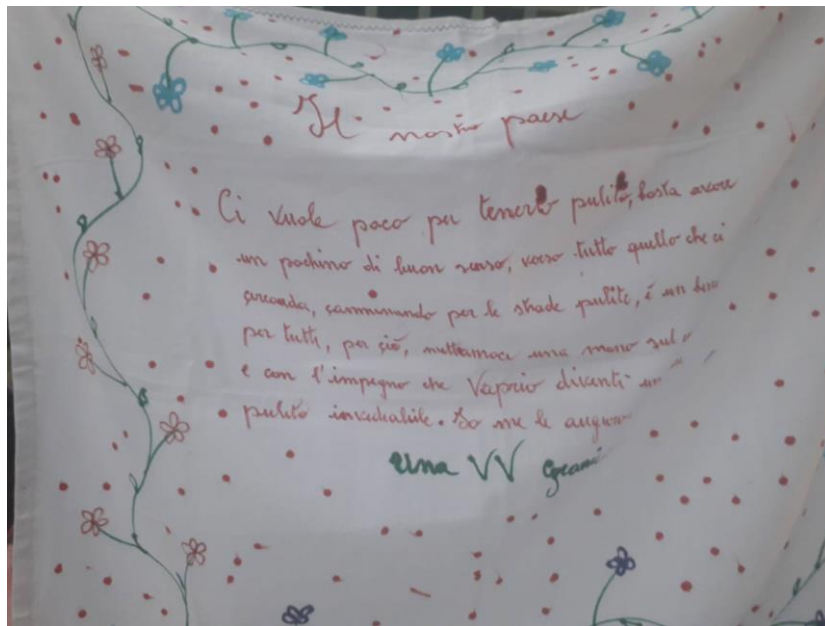 Il nostro paese
Ci vuole poco per tenerlo pulito, basta avere
un pochino di buon senso, verso tutto quello che ci
circonda, camminando per le strade pulite, é un
per tutti, per ció, mettiamoci una mano sul
e con l'impegno che Vaprio diventi un
pulito invidiabile. Io me lo auguro
una VV